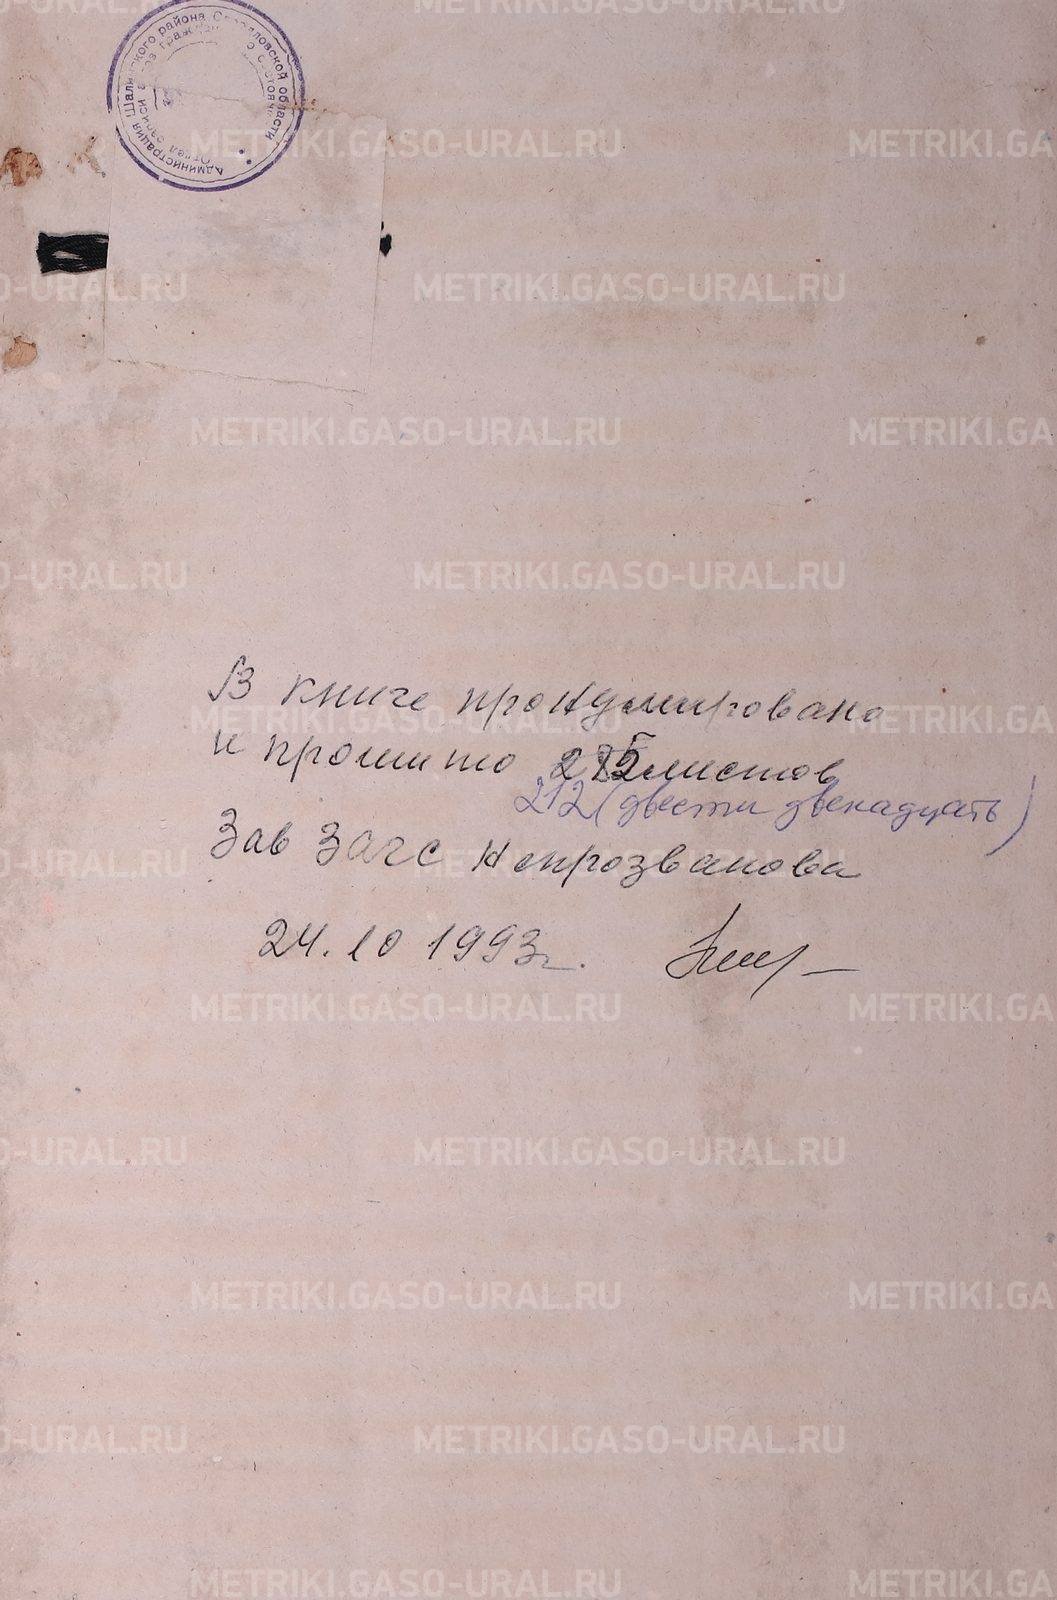 Администрация Шалинского района Свердловской области
Отдел записи актов гражданского состояния
В книге пронумировано
и прошито листов
212 (двести двенадцать)
Зав Загс Непрозванова
24.10 1993г.
METRIKI.GASO-URAL.RU